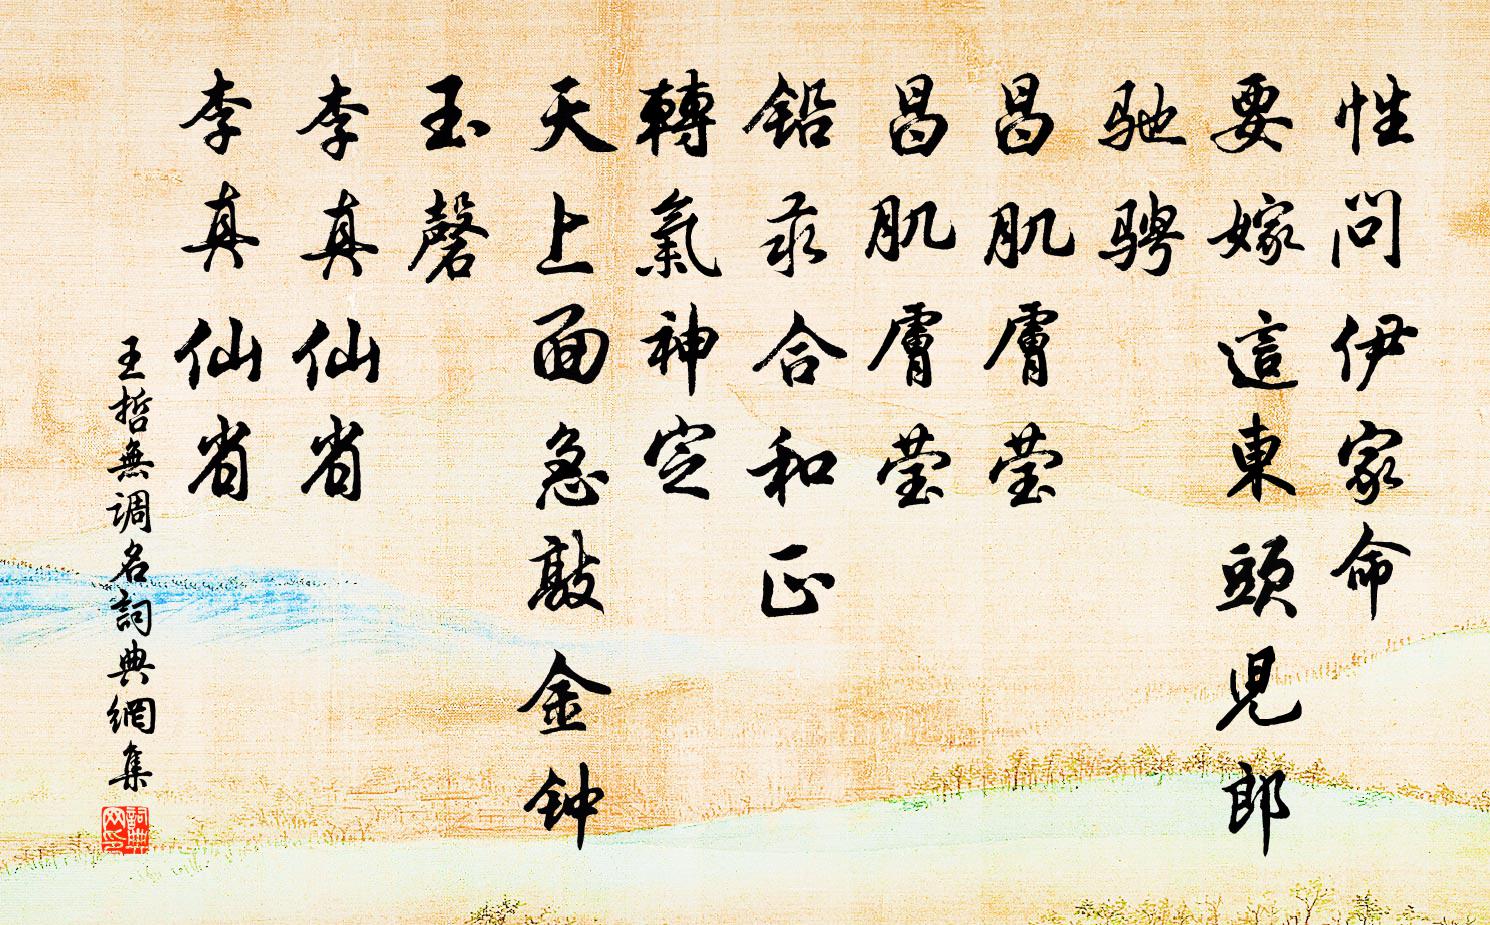 性問伊家命
要嫁這東頭児郎
驰騁
昌肌膚莹
昌肌膚莹
铅汞合和正
轉氣神定
天上面急敲金钟
玉磬
李真仙省
李真仙省
王哲無调名詞典網集
詞典网印